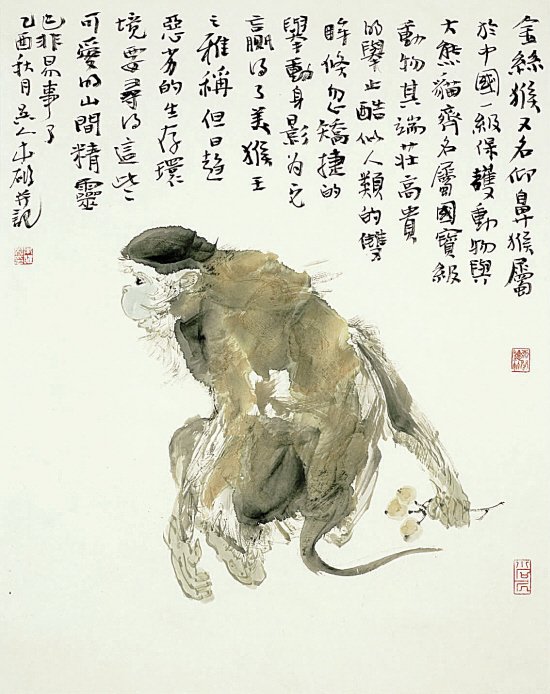 金絲猴又名仰鼻猴屬
於中國一級保護動物與
大熊貓齊名屬國寶級
動物其端莊高貴
的舉止酷似人類的雙
眸倏忽矯捷的
舉動身影為它
贏得了美猴王
之雅稱但日趨
惡劣的生存環
境要尋得這些
可愛的山間精靈
已非易事了
乙酉秋月吳人 並記